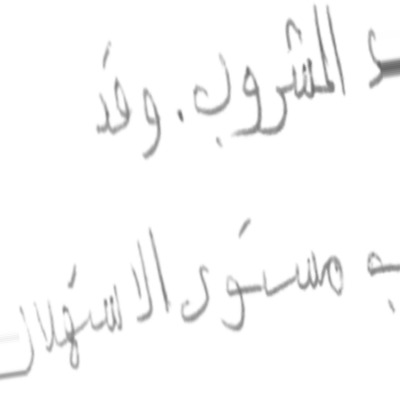 المشروب. وقد
مستوى الاستهلا